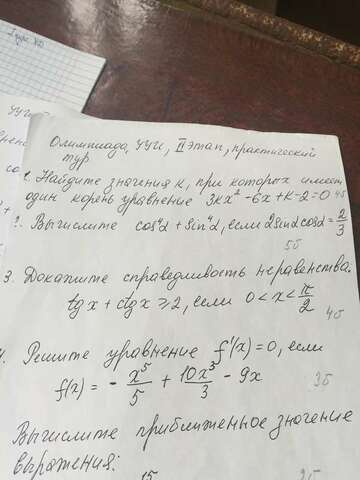 Олимпиада, ЧУИ, II этап, практический
тур
1. Найдите значения к, при которых имеет
один корень уравнение 3кx² - 6x + к - 2 = 0 4б
2. Вычислите cos⁴α + sin⁴α, если 2sinα cosα = 2/3
5б
3. Докажите справедливость неравенства.
tgx + ctgx ≥ 2, если 0 < x < π/2
4б
4. Решите уравнение f'(x) = 0, если
f(x) = - x⁵/5 + 10x³/3 - 9x 3б
Вычислите приближенное значение
выражения: